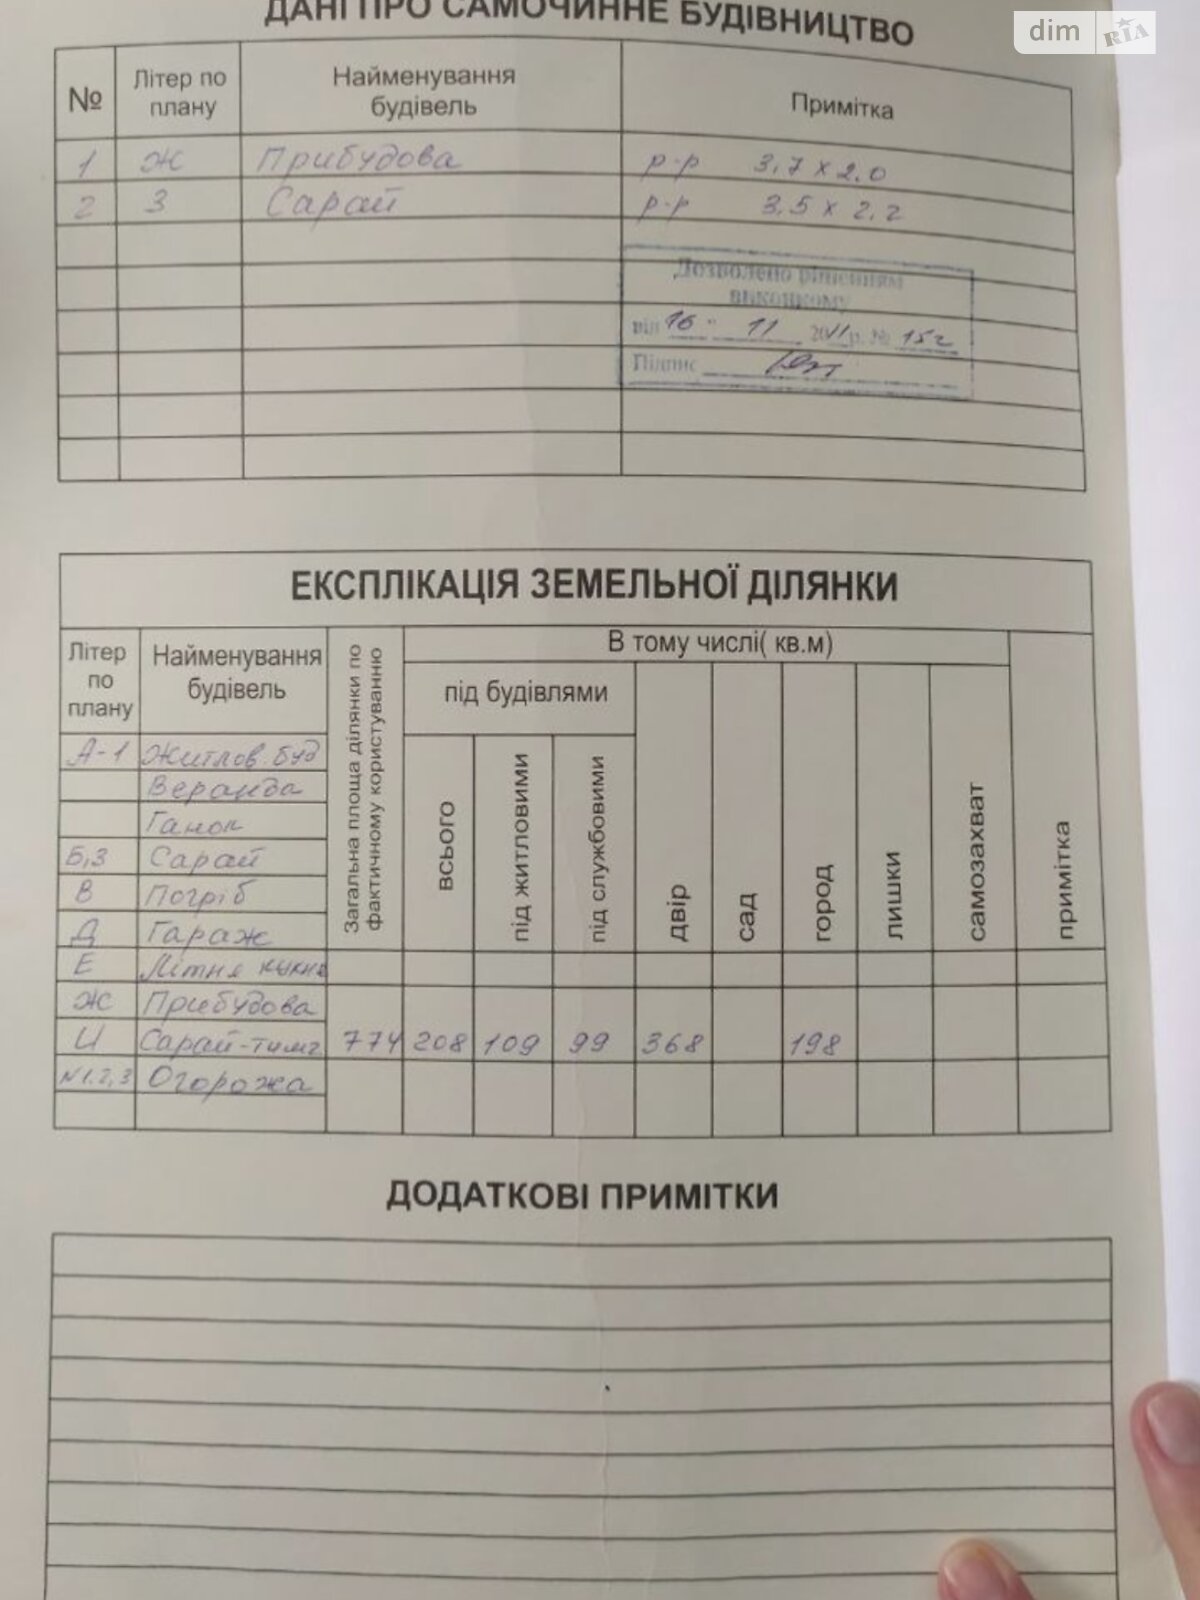 ДАНІ ПРО САМОЧИННЕ БУДІВНИЦТВО
dim RIA
№ Літер по плану Найменування будівель Примітка
1 Ж Прибудова р-р 3,7 х 2.0
2 З Сарай р-р 3,5 х 2,2
Дозволено рішенням
виконкому
від 16 11 2011 р. №
Підпис
ЕКСПЛІКАЦІЯ ЗЕМЕЛЬНОЇ ДІЛЯНКИ
Літер по плану Найменування будівель Загальна площа ділянки по фактичному користуванню В тому числі( кв.м)
під будівлями
всього під житловими під службовими двір сад город лишки самозахват примітка
А-1 Житлов. буд
Веранда
Ганок
Б,З Сарай
В Погріб
Д Гараж
Е Літня кухня
Ж Прибудова
И Сарай-тимч 774 208 109 99 368 198
№1,2,3 Огорожа
ДОДАТКОВІ ПРИМІТКИ